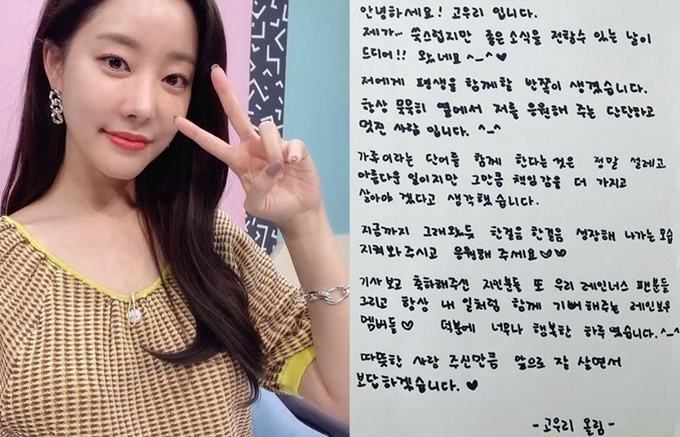 안녕하세요! 고우리 입니다.
제가... 쑥스럽지만 좋은 소식을 전할수 있는 날이
드디어!! 왔네요 ^_^♥
저에게 평생을 함께할 반쪽이 생겼습니다.
항상 묵묵히 옆에서 저를 응원해 주는 단단하고
멋진 사람 입니다. ^_^
가족이라는 단어를 함께 한다는것은 정말 설레고
아름다운 일이지만 그만큼 책임감을 더 가지고
살아야 겠다고 생각했습니다.
지금까지 그래왔듯 한걸음 한걸음 성장해 나가는 모습
지켜봐주시고 응원해 주세요♡♡
기사보고 축하해주신 지인분들 또 우리 레인너스 팬분들
그리고 항상 내 일처럼 함께 기뻐해주는 레인보우
멤버들♡ 덕분에 너무나 행복한 하루였습니다.^_^
따뜻한 사랑 주신만큼 앞으로 잘 살면서
보답하겠습니다.♥
-고우리 올림-